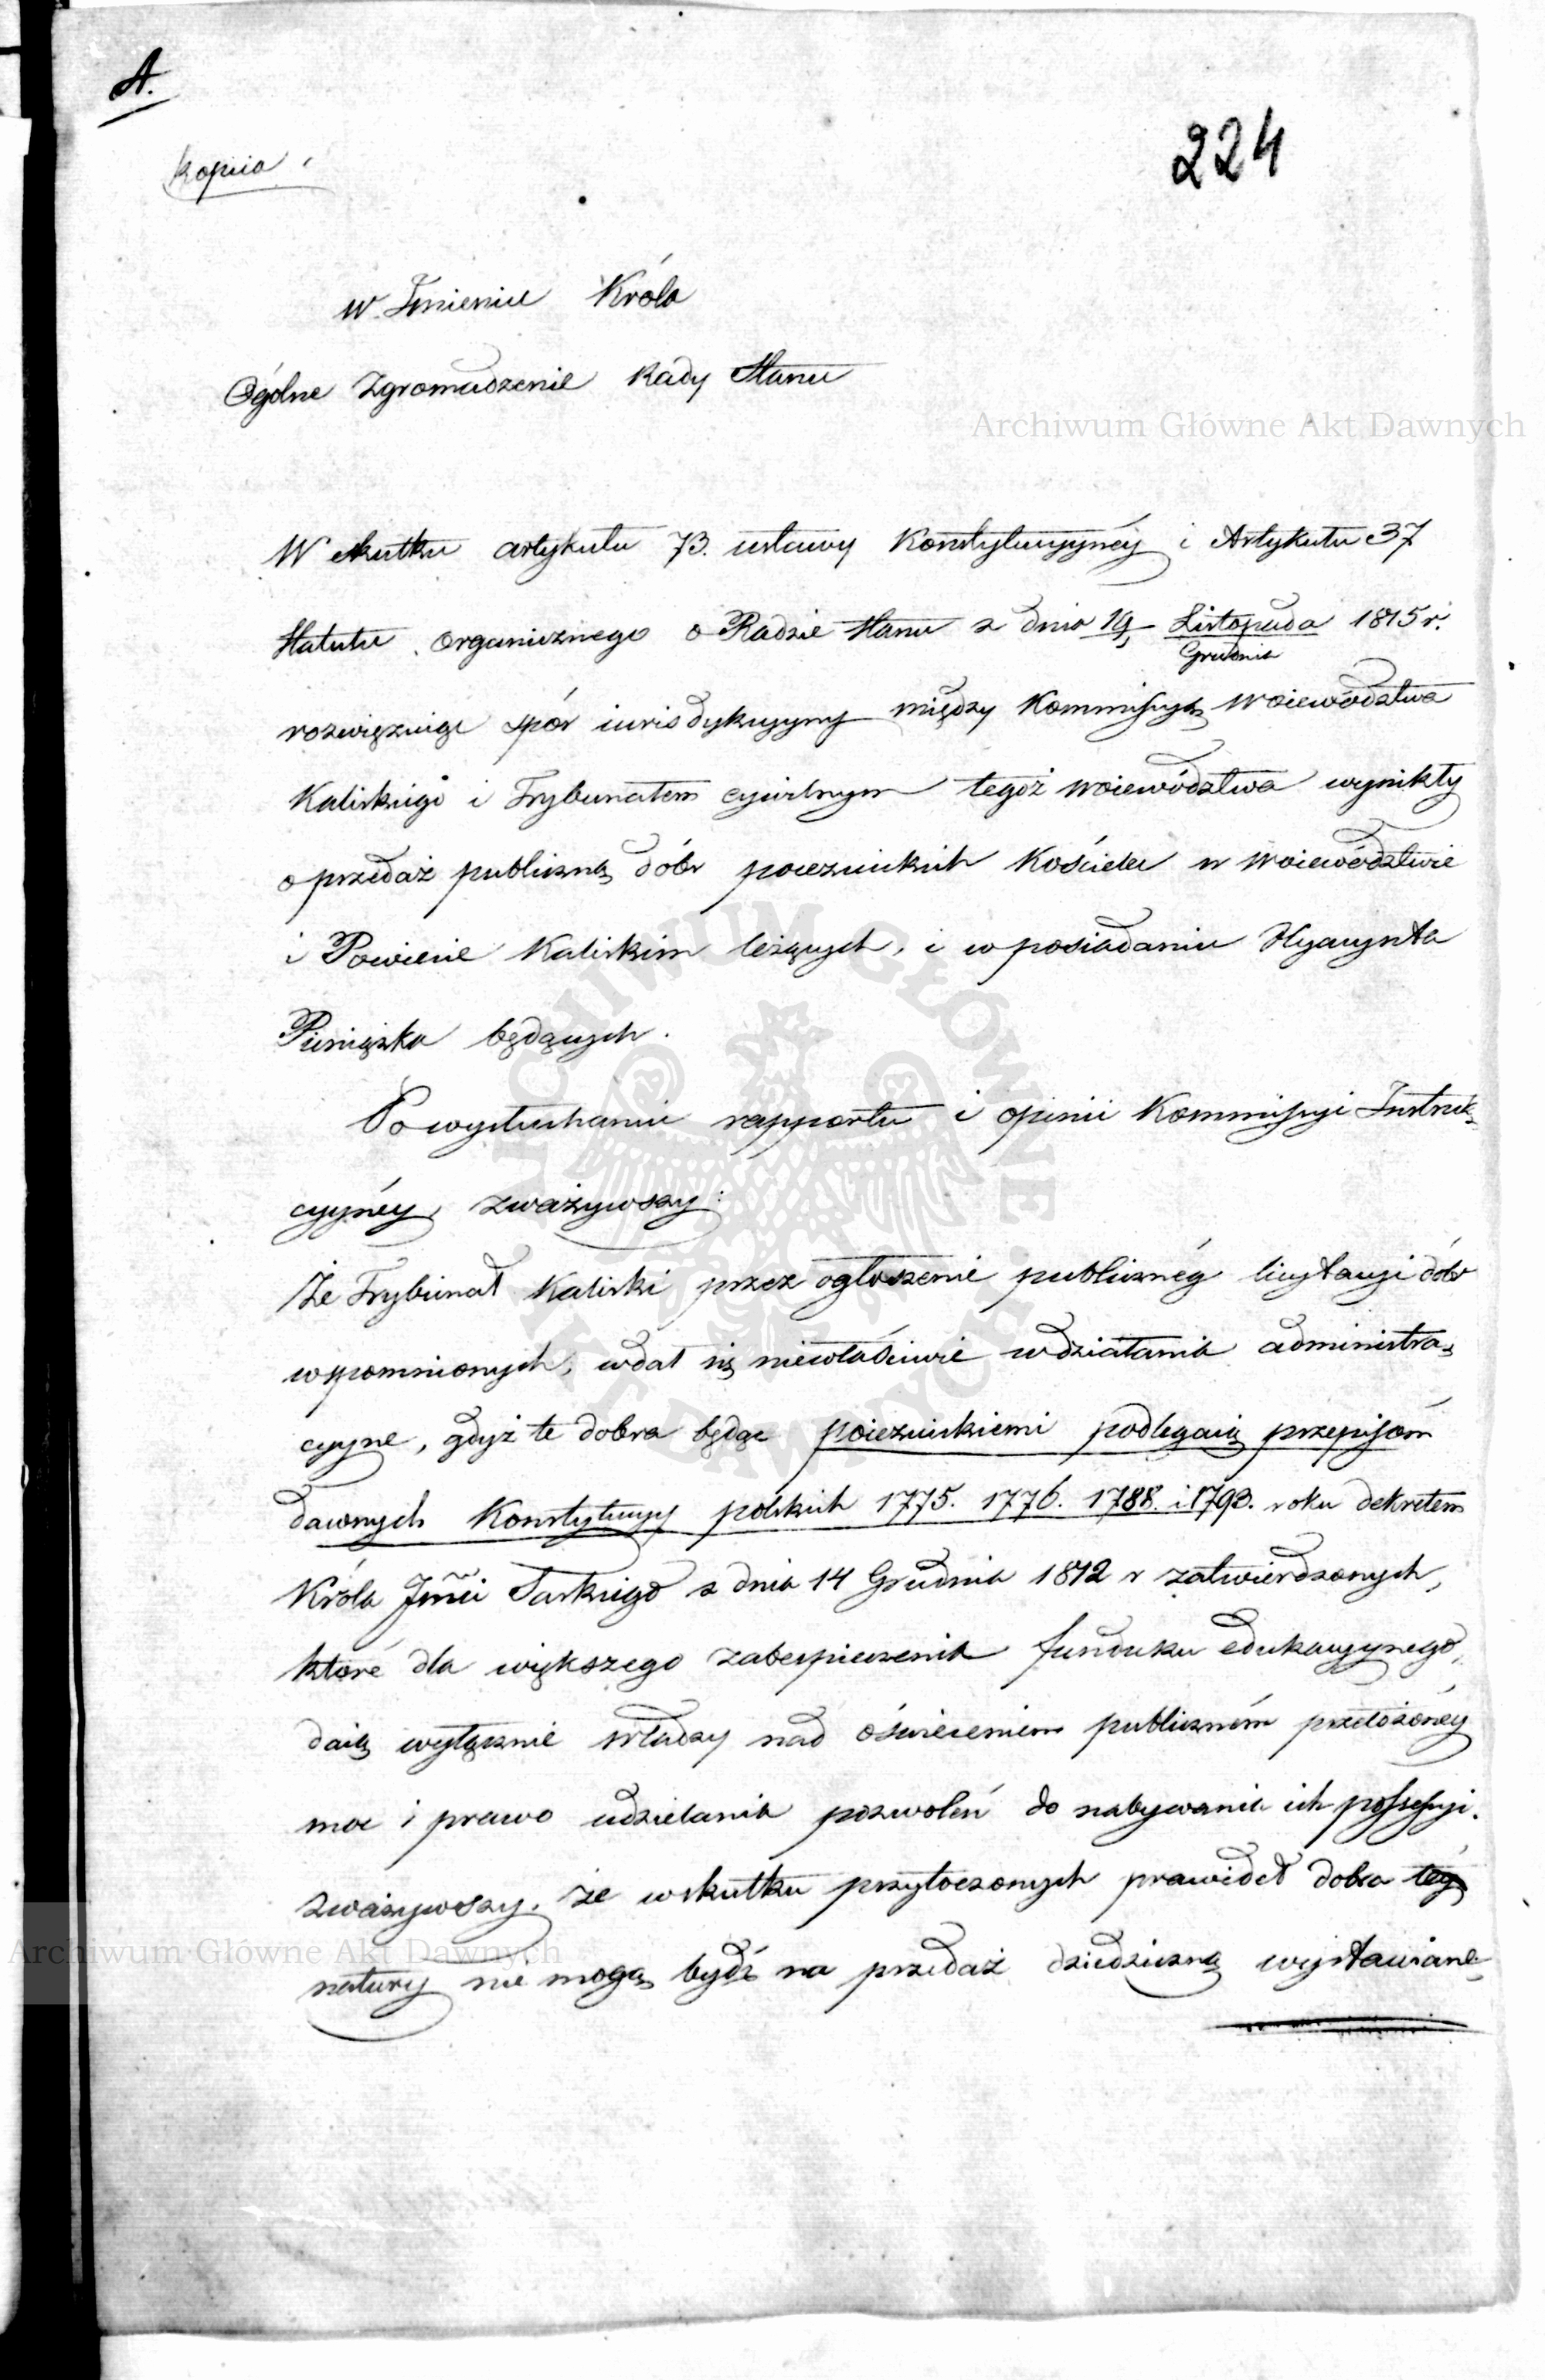 A.
Kopia
224
w Imieniu Króla
Ogólne Zgromadzenie Rady Stanu
Archiwum Główne Akt Dawnych
W skutku artykułu 73. ustawy Konstytucyynéy i Artykułu 37
Statutu organicznego o Radzie Stanu z dnia 19 Listopada 1815 r.
Grudnia
rozwięzuiąc spór iurisdykcyyny między Kommissyą Woiewództwa
Kaliskiego i Trybunałem cywilnym tegoż Woiewództwa wynikły
o przedaż publiczną dóbr poiezuickich Kościelec w Woiewództwie
i Powiecie Kaliskim leżących, i w posiadaniu Hyacynta
Pieniążka będących.
Po wysłuchaniu rapportu i opinii Kommissyi Instruk-
cyynéy zważywszy:
Że Trybunał Kaliski przez ogłoszenie publicznéy licytacyi dóbr
wspomnionych, wdał się niewłaściwie w działania administra-
cyyne, gdyż te dobra będąc poiezuickiemi podlegaią przepisom
dawnych Konstytucyy polskich 1775. 1776. 1788. i 1793. roku dekretem
Króla Jmci Saskiego z dnia 14 Grudnia 1812 r zatwierdzonych,
które dla większego zabezpieczenia funduszu edukacyynego,
daią wyłącznie władzy nad oświeceniem publiczném przełożonéy
moc i prawo udzielania pozwoleń do nabywania ich possessyi.
zważywszy. że w skutku przytoczonych prawideł dobra téy
natury nie mogą bydź na przedaż dziedziczną wystawiane
Archiwum Główne Akt Dawnych
ARCHIWUM GŁÓWNE AKT DAWNYCH